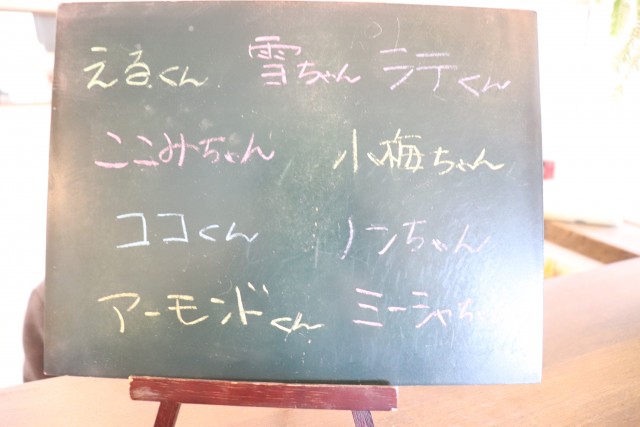 えるくん 雪ちゃん ラテくん
ここみちゃん 小梅ちゃん
ココくん ノンちゃん
アーモンドくん ミーシャちゃ